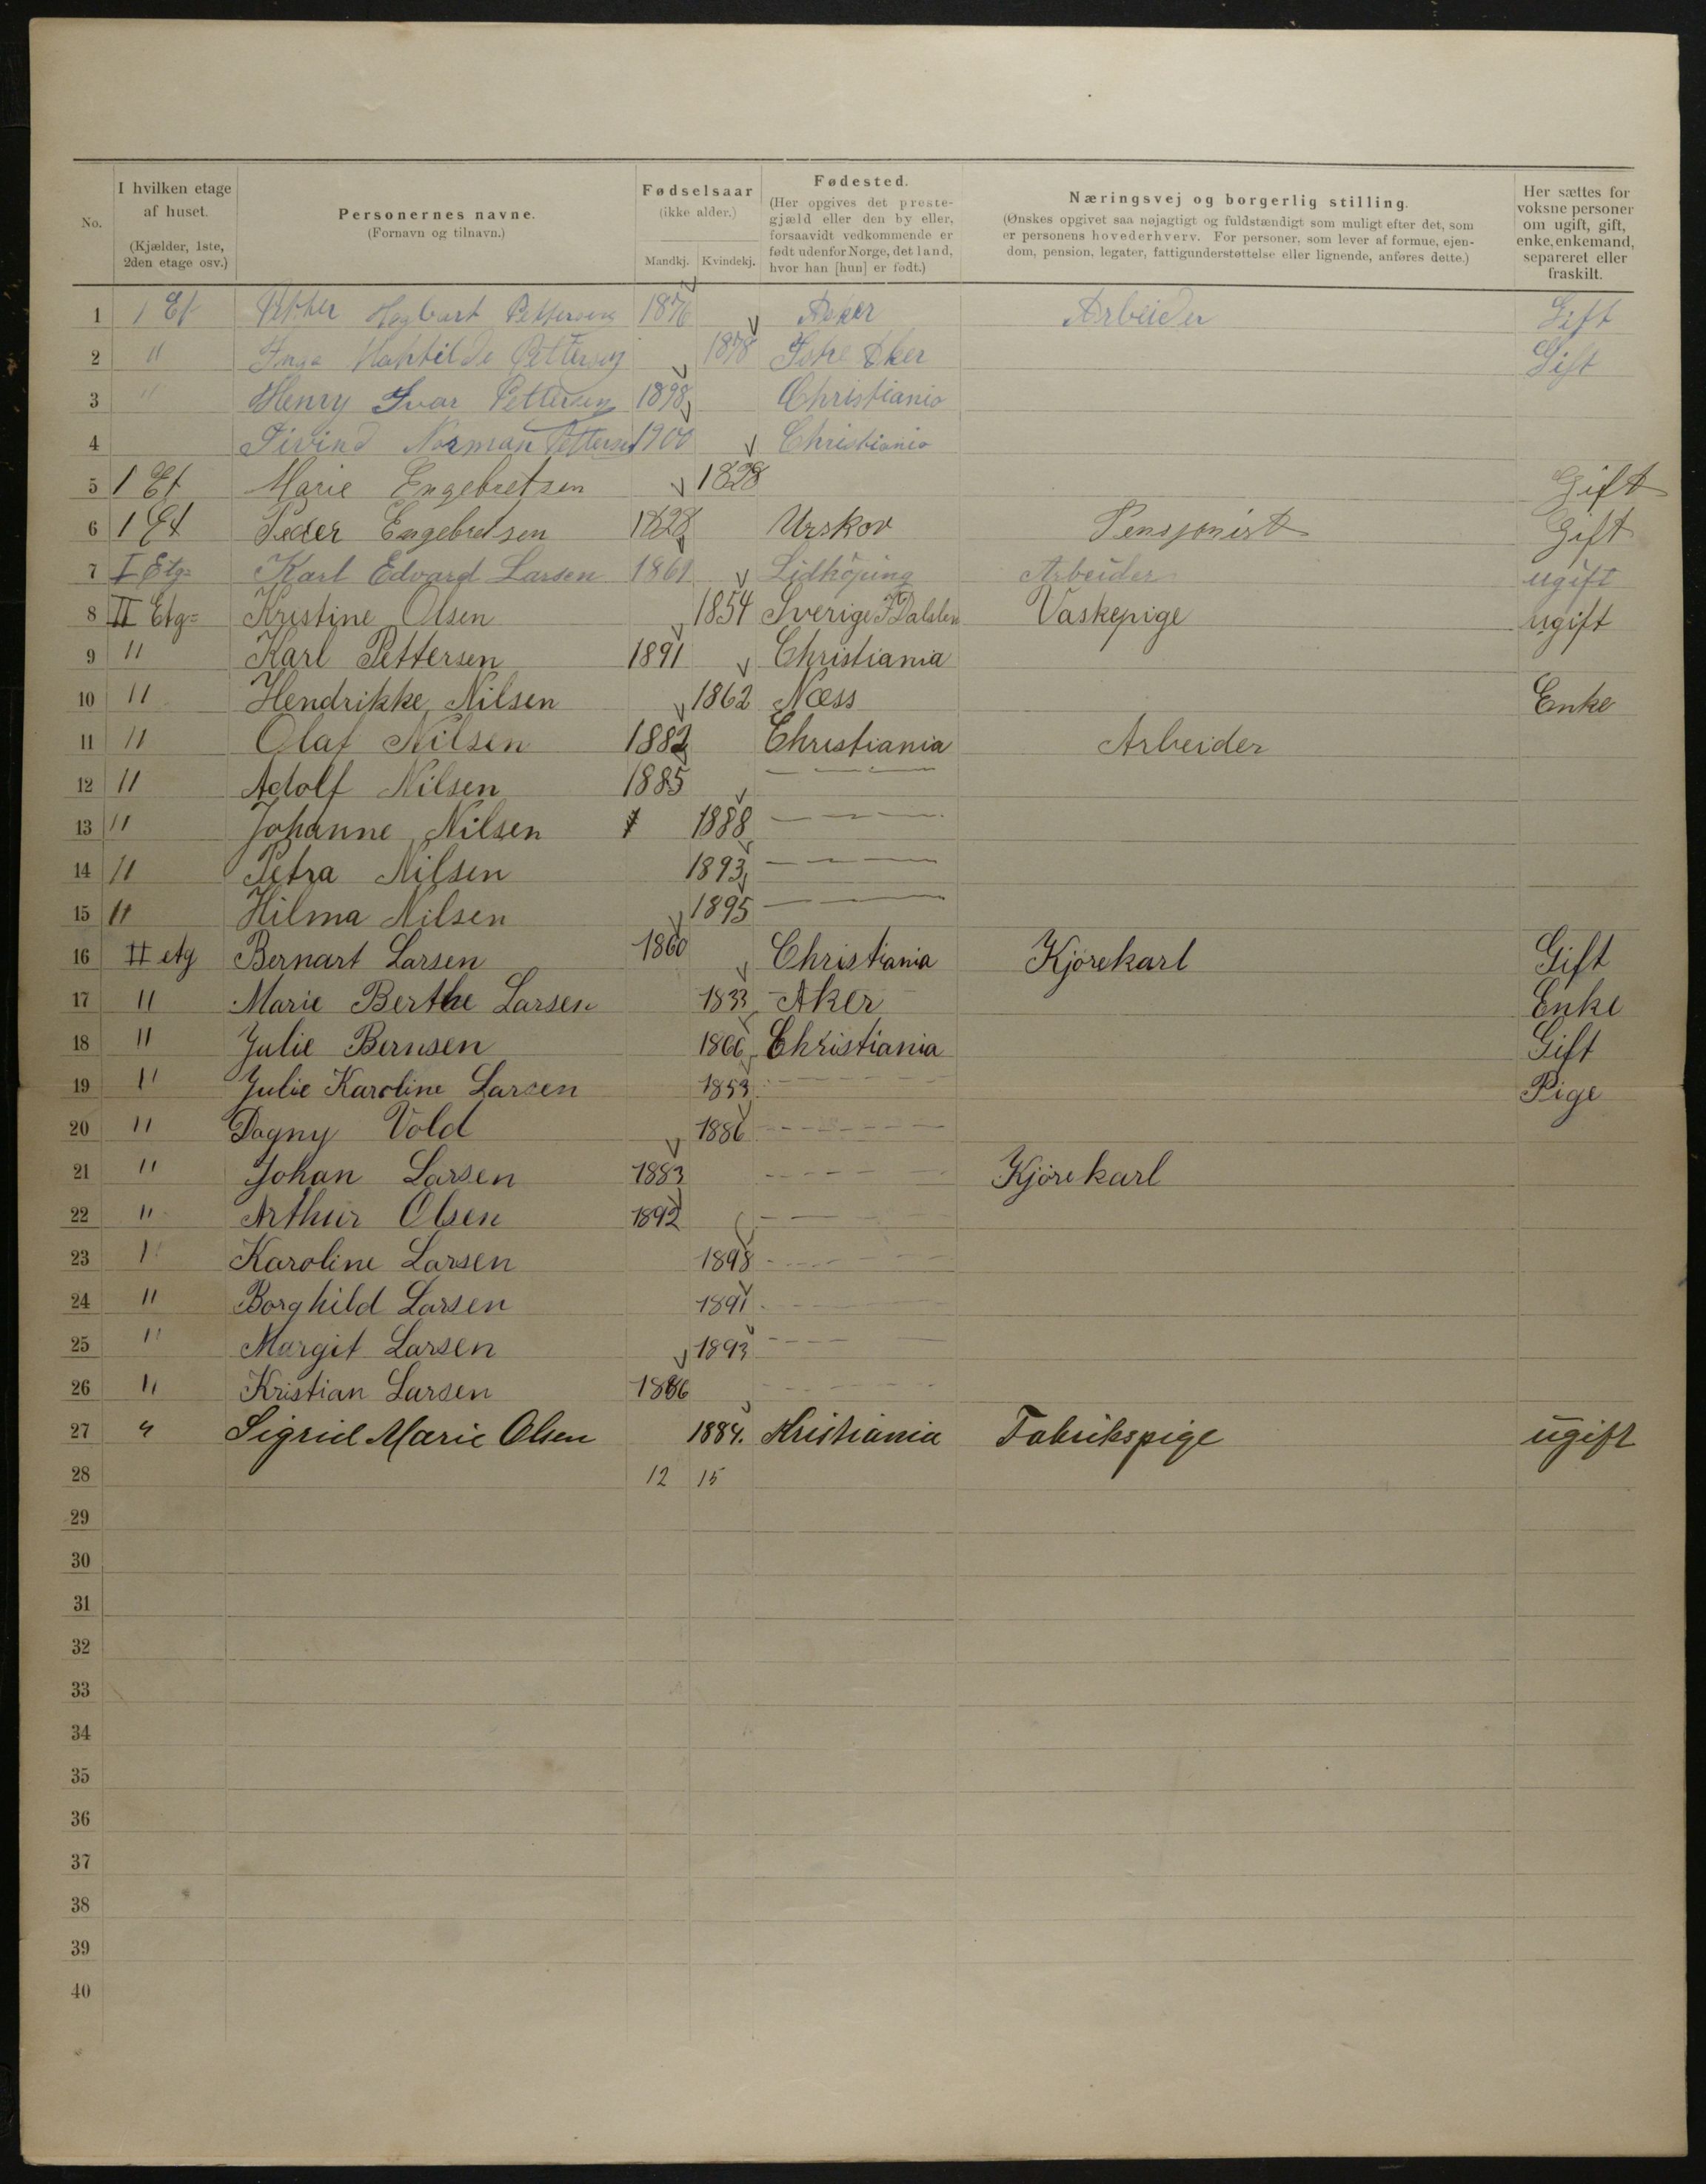 No.
I hvilken etage af huset. (Kjælder, 1ste, 2den etage osv.)
Personernes navne. (Fornavn og tilnavn.)
Fødselsaar (ikke alder.) Mandkj. Kvindekj.
Fødested. (Her opgives det præstegjæld eller den by eller, forsaavidt vedkommende er født udenfor Norge, det land, hvor han [hun] er født.)
Næringsvej og borgerlig stilling. (Ønskes opgivet saa nøjagtigt og fuldstændigt som muligt efter det, som er personens hovederhverv. For personer, som lever af formue, ejendom, pension, legater, fattigunderstøttelse eller lignende, anføres dette.)
Her sættes for voksne personer om ugift, gift, enke, enkemand, separeret eller fraskilt.
1 1 Et Petter Hagbart Pettersen 1876 Asker Arbeider Gift
2 " Inga Mahtilde Pettersen 1878 Aker Gift
3 " Henry Ivar Pettersen 1898 Christiania
4 Eivind Norman Pettersen 1900 Christiania
5 1 Et Marie Engebretsen 1828 Gift
6 1 Et Peder Engebretsen 1828 Urskov Pensjonist Gift
7 I Etg= Karl Edvard Larsen 1861 Lidköping Arbeider ugift
8 II Etg= Kristine Olsen 1854 Sverige Dalslen Vaskepige ugift
9 " Karl Pettersen 1891 Christiania
10 " Hendrikke Nilsen 1862 Næss Enke
11 " Olaf Nilsen 1882 Christiania Arbeider
12 " Adolf Nilsen 1885 — — —
13 " Johanne Nilsen 1888 — — —
14 " Petra Nilsen 1893 — — —
15 " Hilma Nilsen 1895 — — —
16 II etg Bernart Larsen 1860 Christiania Kjörekarl Gift
17 " Marie Berthe Larsen 1833 Aker Enke
18 " Julie Bernsen 1866 Christiania Gift
19 " Julie Karoline Larsen 1853 - - - - Pige
20 " Dagny Vold 1886 - - - -
21 " Johan Larsen 1883 - - - - Kjörekarl
22 " Arthur Olsen 1892 - - - -
23 " Karoline Larsen 1898 - - - -
24 " Borghild Larsen 1891 - - - -
25 " Margit Larsen 1893 - - - -
26 " Kristian Larsen 1886 - - - -
27 " Sigrid Marie Olsen 1884. Kristiania Fabrikspige ugift
28 12 15
29
30
31
32
33
34
35
36
37
38
39
40